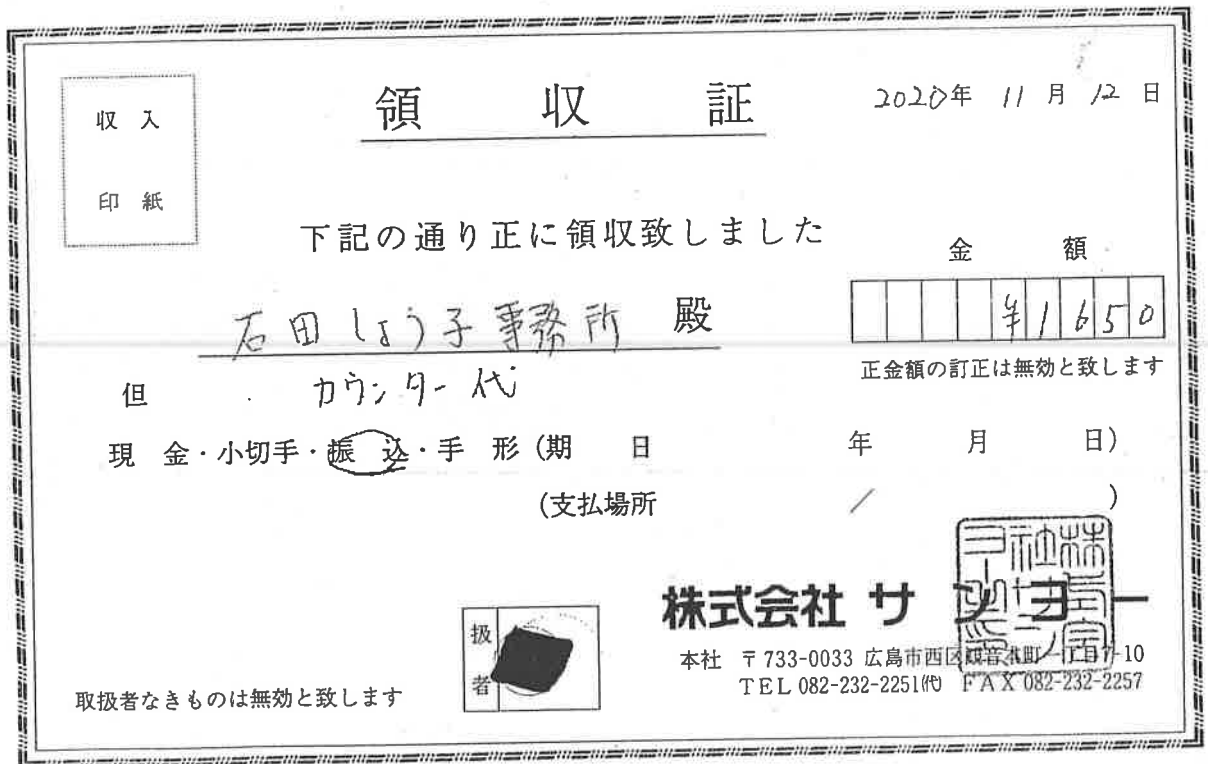 収入
印紙
領収証
2020年 11月 12日
下記の通り正に領収致しました
金額
石田しょう子事務所 殿
¥1650
正金額の訂正は無効と致します
但 カウンター代
現金・小切手・振込・手形 (期日 年 月 日)
(支払場所 / )
株式会社 サンヨー
扱者
本社 〒733-0033 広島市西区観音本町一丁目7-10
TEL 082-232-2251㈹ FAX 082-232-2257
取扱者なきものは無効と致します